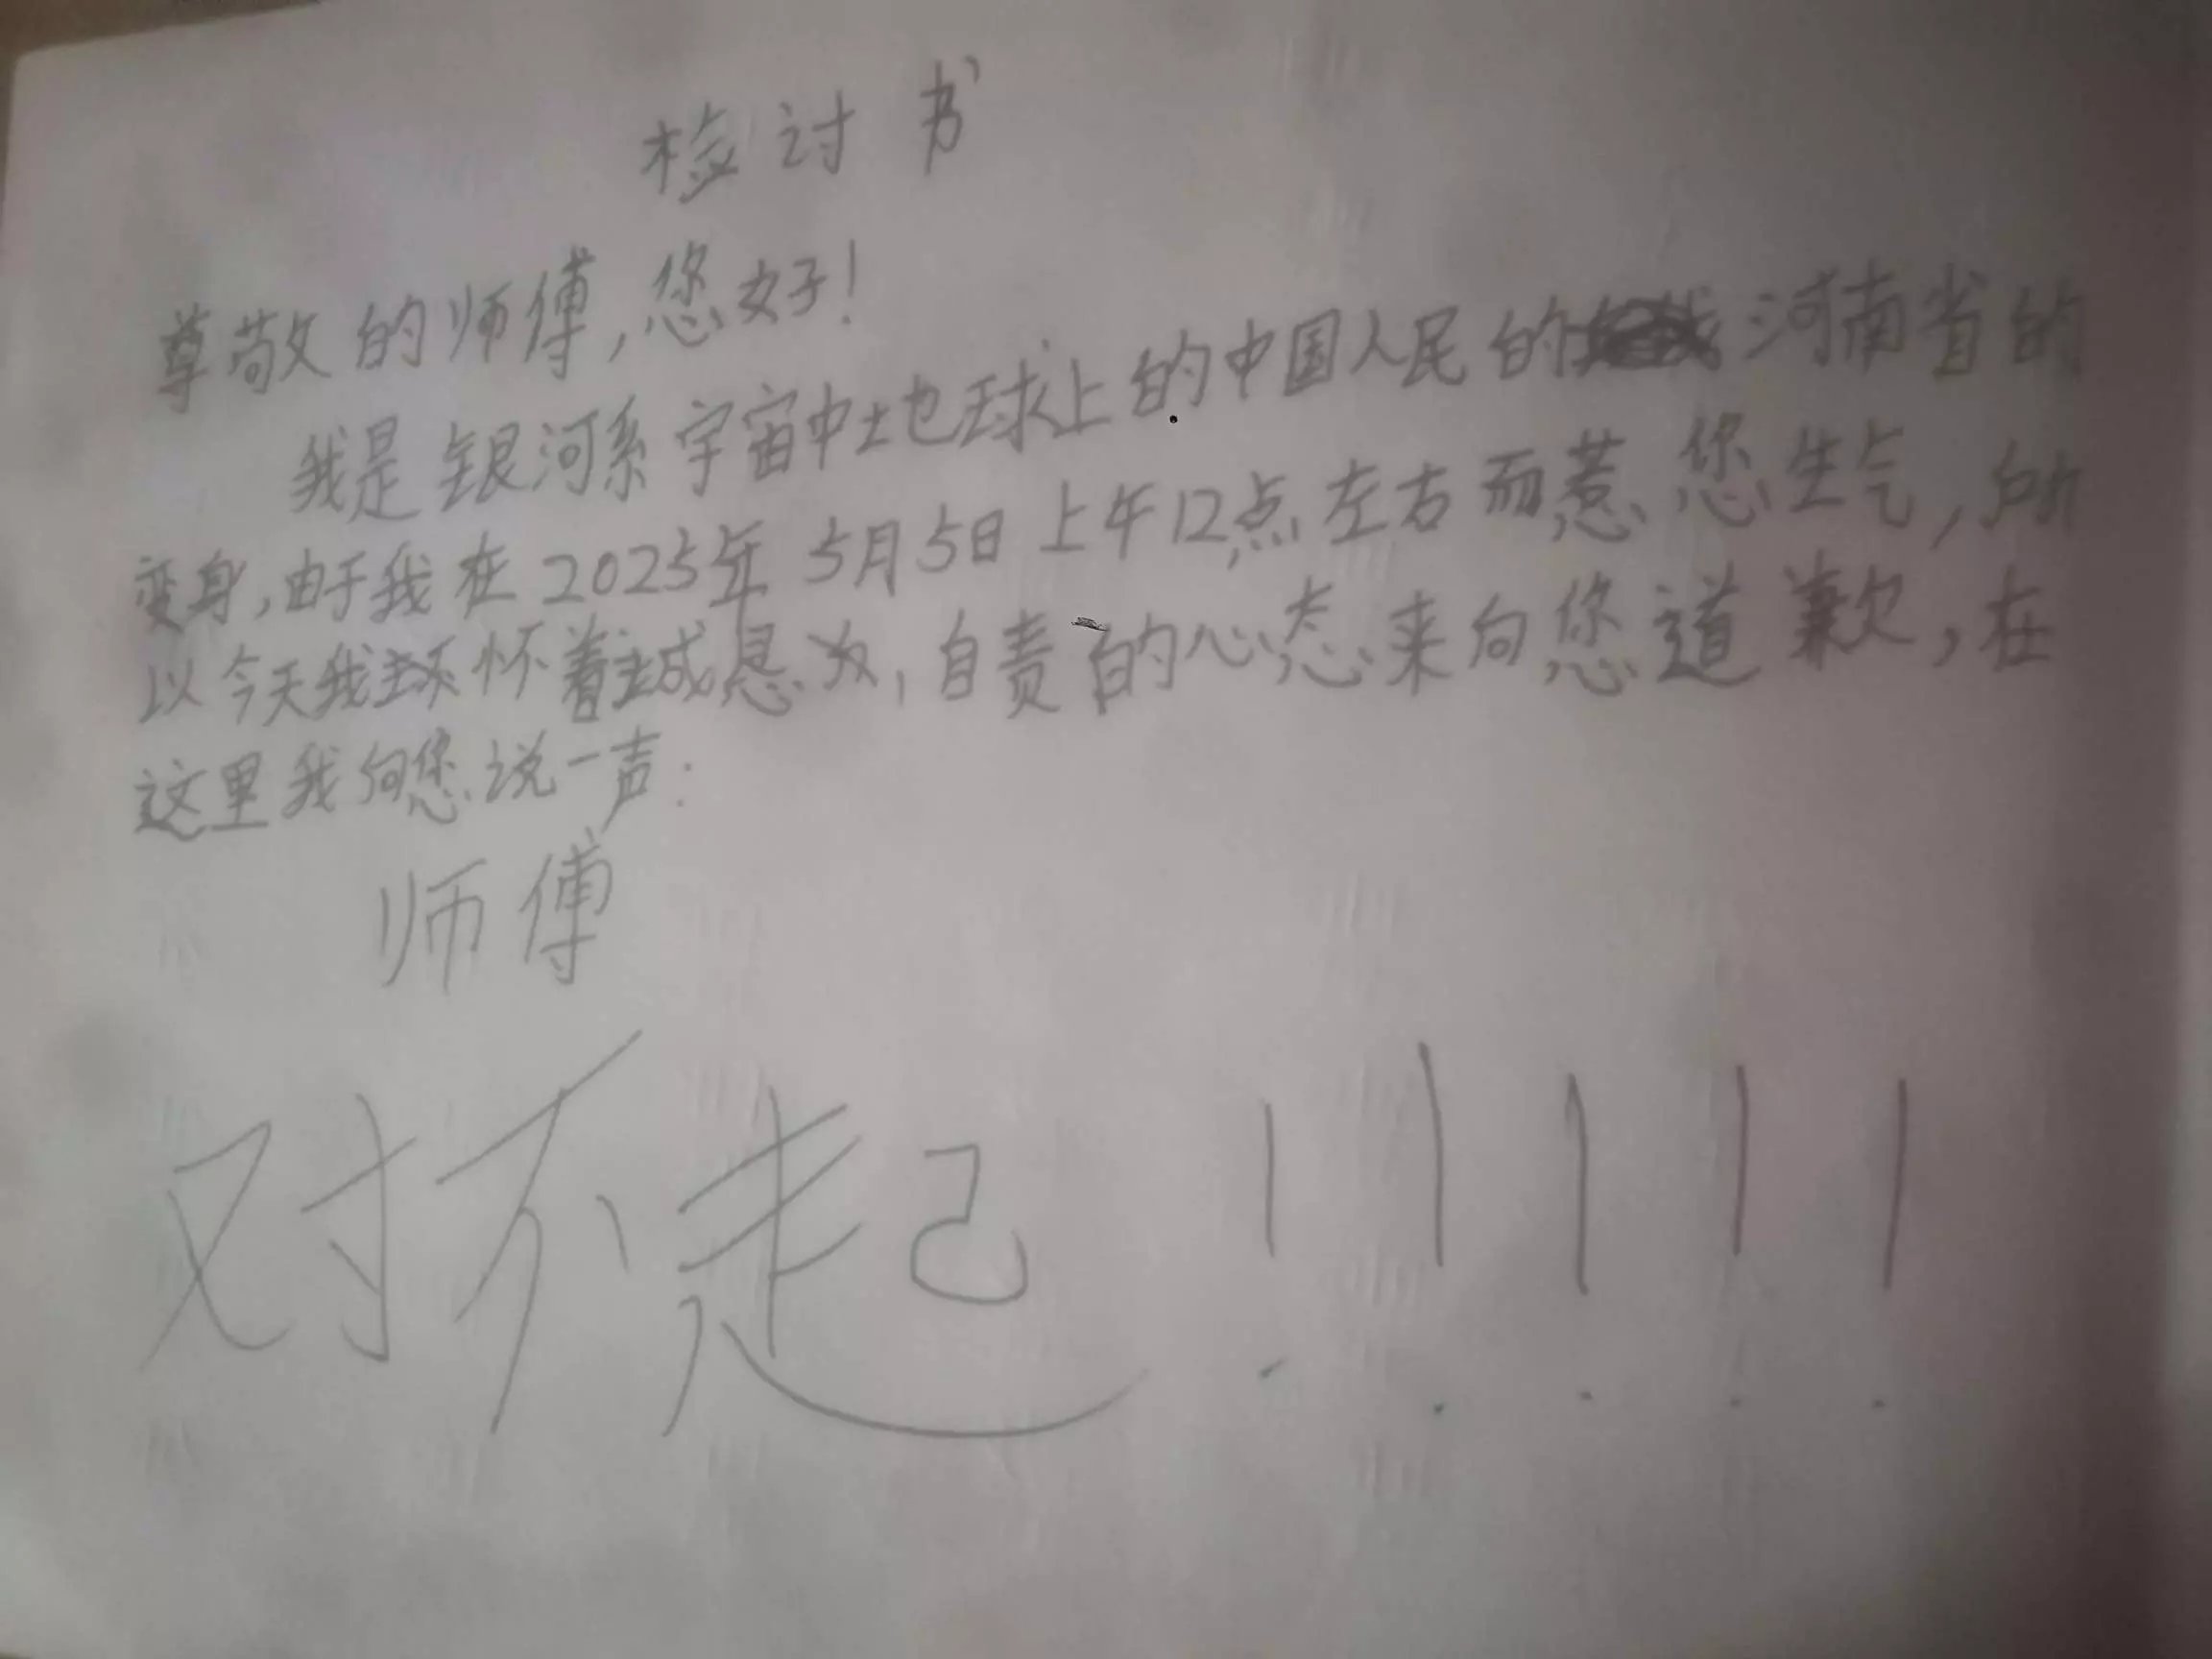 检讨书
尊敬的师傅,您好!
我是银河系宇宙中地球上的中国人民的河南省的
变身,由于我在2025年5月5日上午12点左右而惹您生气,所
以今天我怀着,自责的心态来向您道歉,在
这里我向您说一声:
师傅
对不起!!!!!